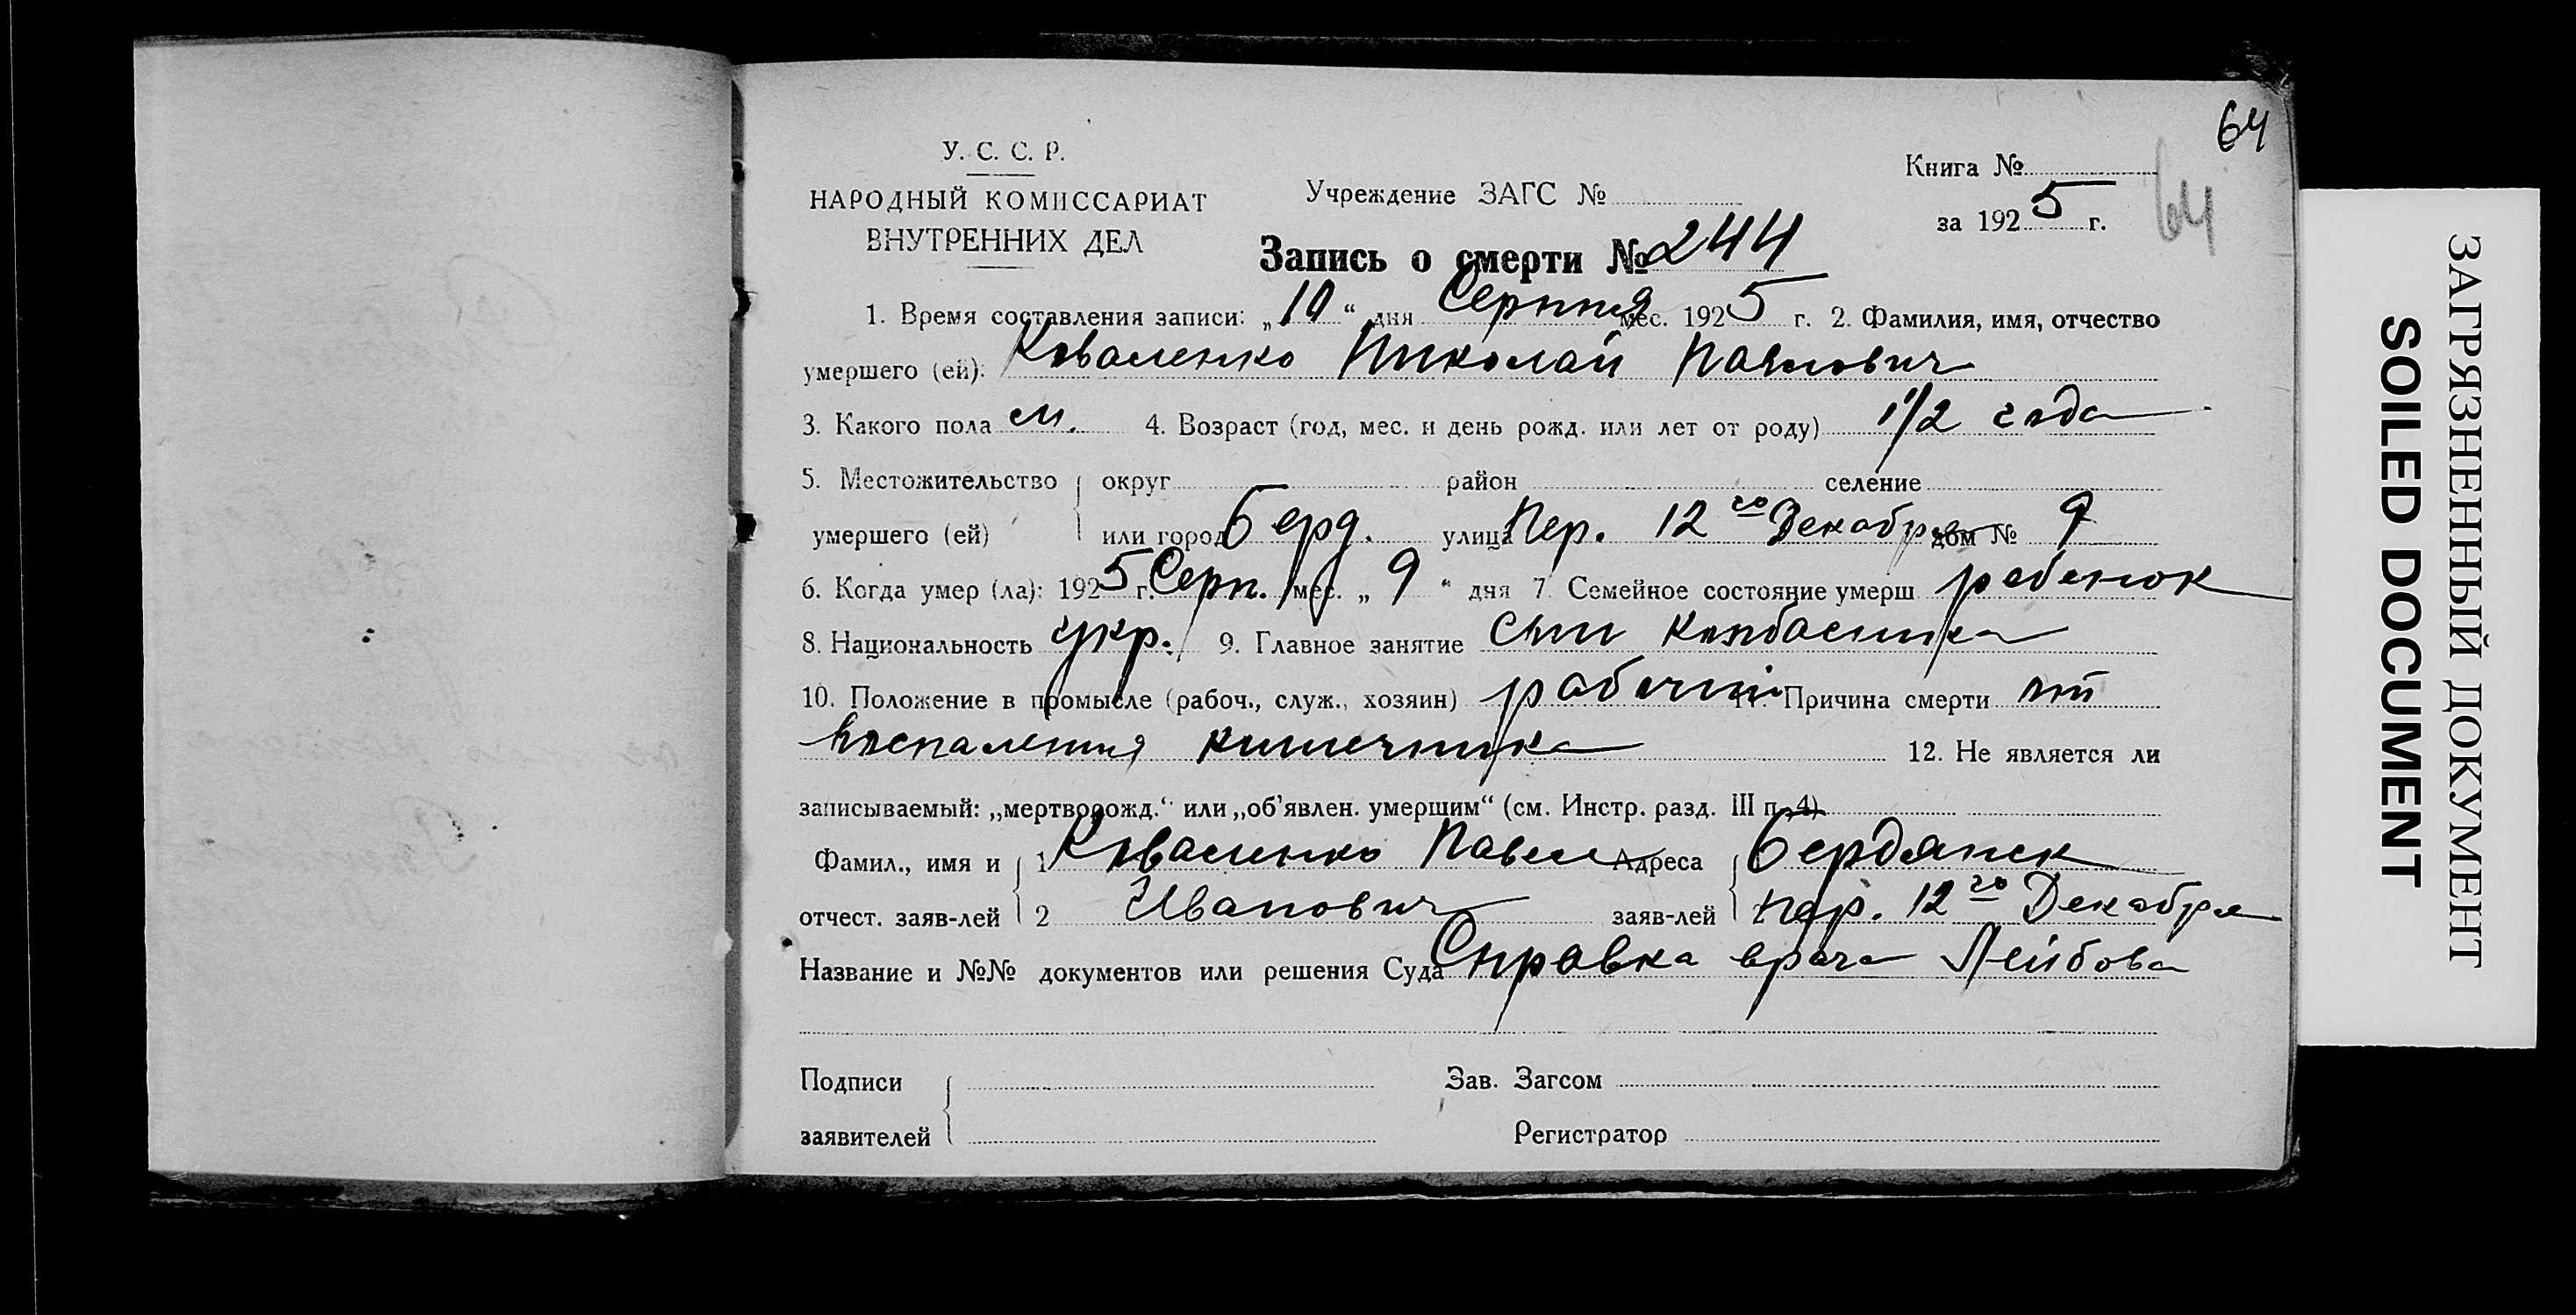 64
У. С. С. Р.
НАРОДНЫЙ КОМИССАРИАТ
ВНУТРЕННИХ ДЕЛ
Учреждение ЗАГС №
Книга №
за 1925 г.
64
Запись о смерти № 244
1. Время составления записи: „10“ дня Серпня мес. 1925 г. 2. Фамилия, имя, отчество
умершего (ей): Коваленко Николай Павлович
3. Какого пола м. 4. Возраст (год, мес. и день рожд. или лет от роду) 1 1/2 года
5. Местожительство округ район селение
умершего (ей) или город Берд. улица Пер. 12го Декабря дом № 9
6. Когда умер (ла): 1925 г. Серп. мес. „9“ дня 7 Семейное состояние умерш ребенок
8. Национальность укр. 9. Главное занятие сын колбасника
10. Положение в промысле (рабоч., служ., хозяин) рабочий 11. Причина смерти от
воспаления кишечника 12. Не является ли
записываемый: „мертворожд.“ или „об’явлен. умершим“ (см. Инстр. разд. III п. 4)
Фамил., имя и 1 Коваленко Павел Адреса Бердянск
отчест. заяв-лей 2 Иванович заяв-лей пер. 12го Декабря
Название и №№ документов или решения Суда Справка врача Лейбова
Подписи Зав. Загсом
заявителей Регистратор
ЗАГРЯЗНЕННЫЙ ДОКУМЕНТ
SOILED DOCUMENT